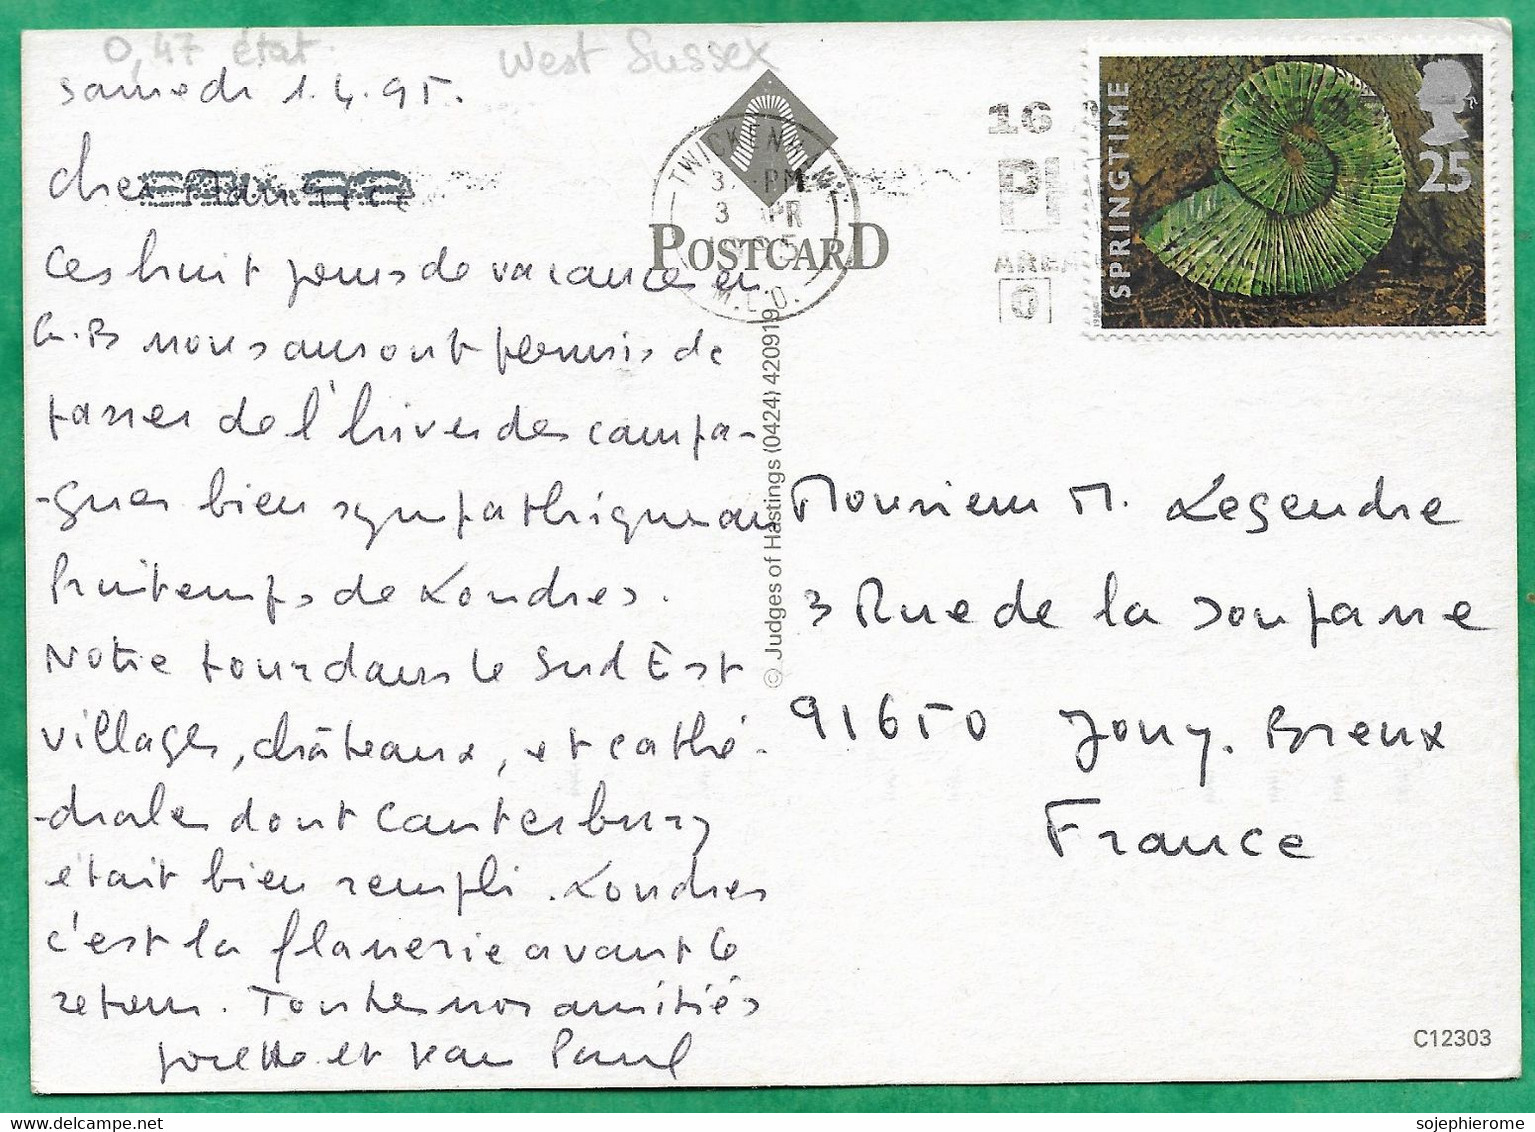 0,47 état West Sussex
samedi 1.4.95.
cher Maurice
Ces huit jours de vacances en
G.B nous auront permis de
passer de l'hiver des campa-
-gnes bien sympathiques au
Printemps de Londres.
Notre tour dans le Sud Est
villages, châteaux, et cathé-
-drales dont Canterbury
était bien rempli. Londres
c'est la flanerie avant le
retour. Toutes nos amitiés
Josette et Jean Paul
POSTCARD
TWICKENHAM
3 PM
3 APR
1995
M.L.O.
© Judges of Hastings (0424) 420919
16
AREA
SPRINGTIME
25
Monsieur M. Legendre
3 Rue de la Soupane
91650 Jouy. Breux
France
C12303
sojephierome